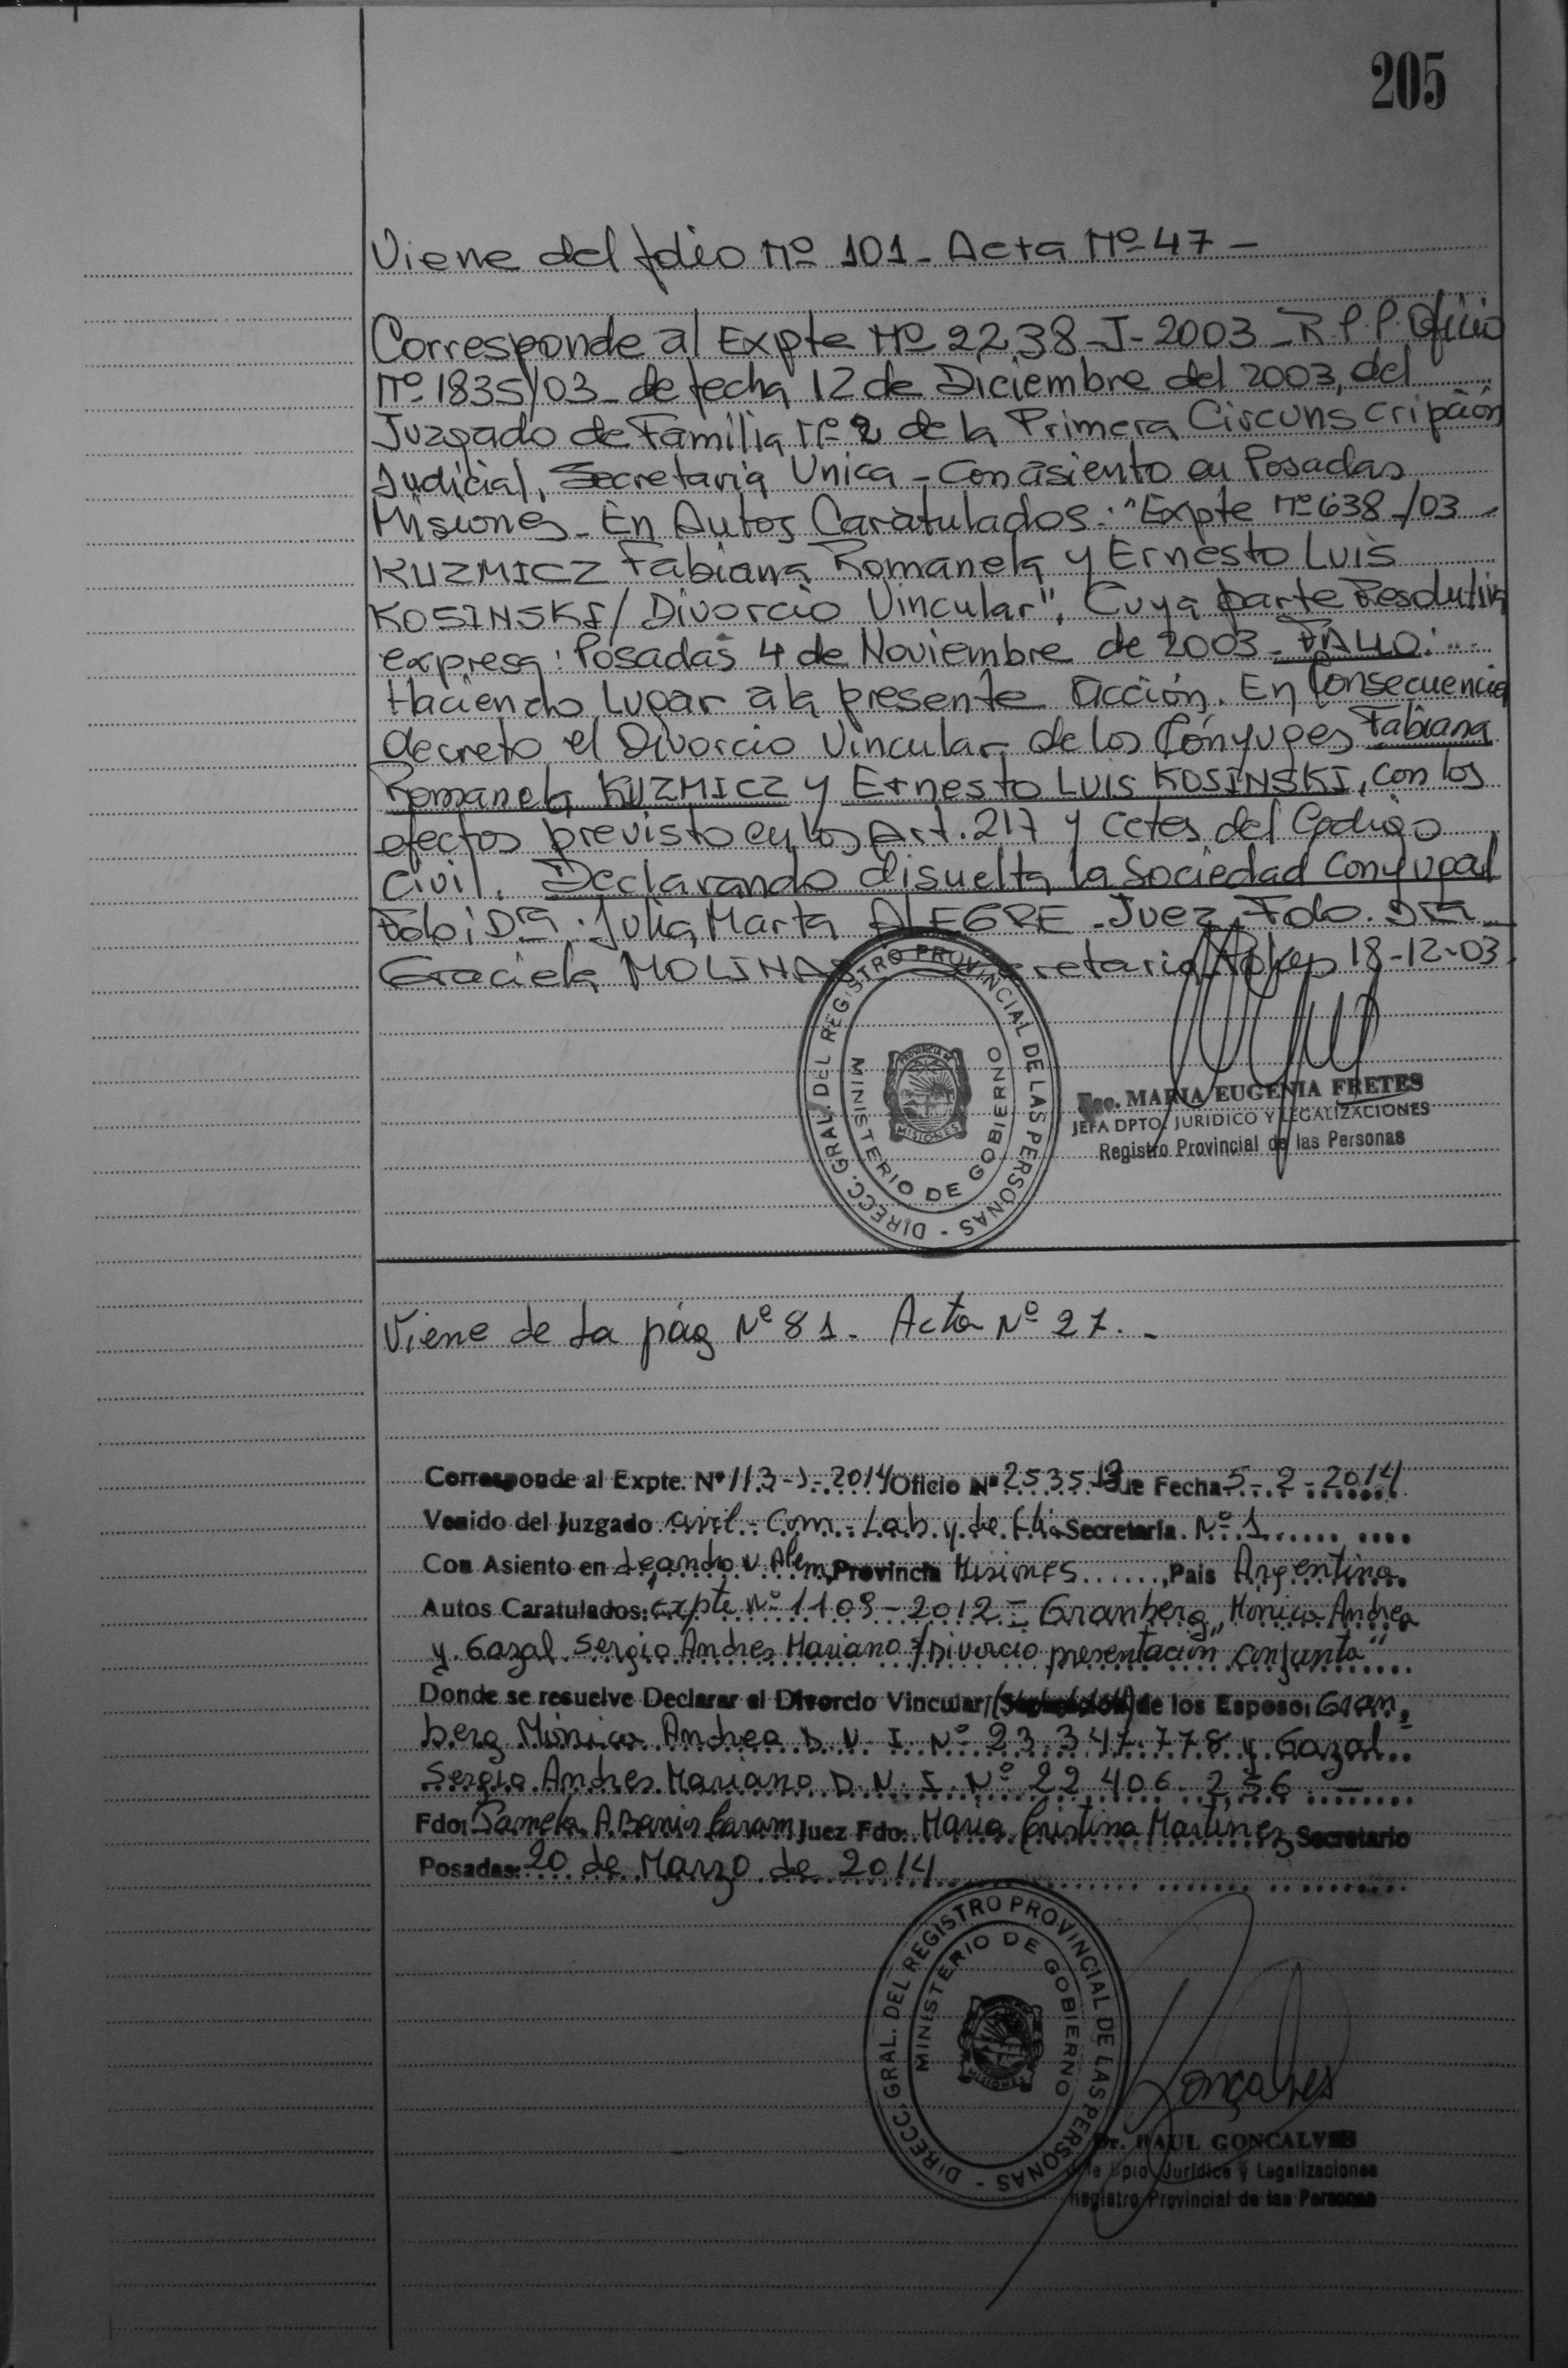 205
Viene del folio Nº 101 - Acta Nº 47 -
Corresponde al Expte Nº 2238-J-2003 - R.P.P. Oficio
Nº 1835/03 - de fecha 12 de Diciembre del 2003, del
Juzgado de Familia Nº 2 de la Primera Circunscripción
Judicial, Secretaria Unica - Con asiento en Posadas
Misiones - En Autos Caratulados: "Expte Nº 638-/03 -
KUZMICZ Fabiana Romanela y Ernesto Luis
KOSINSKI / Divorcio Vincular", Cuya parte Resolutiva
expresa: Posadas 4 de Noviembre de 2003 - FALLO:
Haciendo Lugar a la presente acción. En Consecuencia
decreto el Divorcio Vincular de los Cónyuges Fabiana
Romanela KUZMICZ y Ernesto Luis KOSINSKI, con los
efectos previsto en los Art. 217 y cctes del Codigo
Civil. Declarando disuelta la Sociedad Conyugal
Fdo: Dra. Julia Marta ALEGRE - Juez, Fdo. Dra
Graciela MOLINAS 18-12-03
DIRECC. GRAL. DEL REGISTRO PROVINCIAL DE LAS PERSONAS -
MINISTERIO DE GOBIERNO
PROVINCIA DE
MISIONES
MARIA EUGENIA FRETES
JEFA DPTO. JURIDICO Y LEGALIZACIONES
Registro Provincial de las Personas
Viene de la pág Nº 81 - Acta Nº 27. -
Corresponde al Expte. Nº 113-J-2014 Oficio Nº 2535-13 de Fecha 5-2-2014
Venido del Juzgado Civil - Com - Lab. y de Flia Secretaría Nº 1
Con Asiento en Leandro N Alem, Provincia Misiones, Pais Argentina
Autos Caratulados: Expte Nº 1109-2012 - Granberg, Monica Andrea
y Gazal Sergio Andres Mariano s/Divorcio presentación conjunta"
Donde se resuelve Declarar el Divorcio Vincular de los Esposo: Gran-
berg Mónica Andrea D.N.I. Nº 23.347.778 y Gazal
Sergio Andres Mariano D.N.I. Nº 22.406.256 -
Fdo: Pamela A. Juez Fdo: María Cristina Martinez Secretario
Posadas: 20 de Marzo de 2014
DIRECC. GRAL. DEL REGISTRO PROVINCIAL DE LAS PERSONAS -
MINISTERIO DE GOBIERNO
MISIONES
Goncalves
Dr. RAUL GONCALVES
Dpto. Jurídico y Legalizaciones
Registro Provincial de las Personas